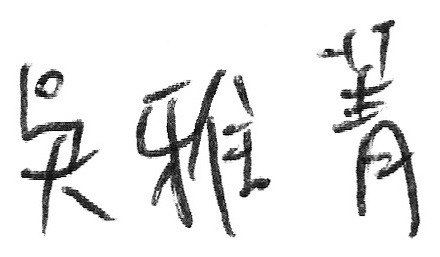 吳雅菁